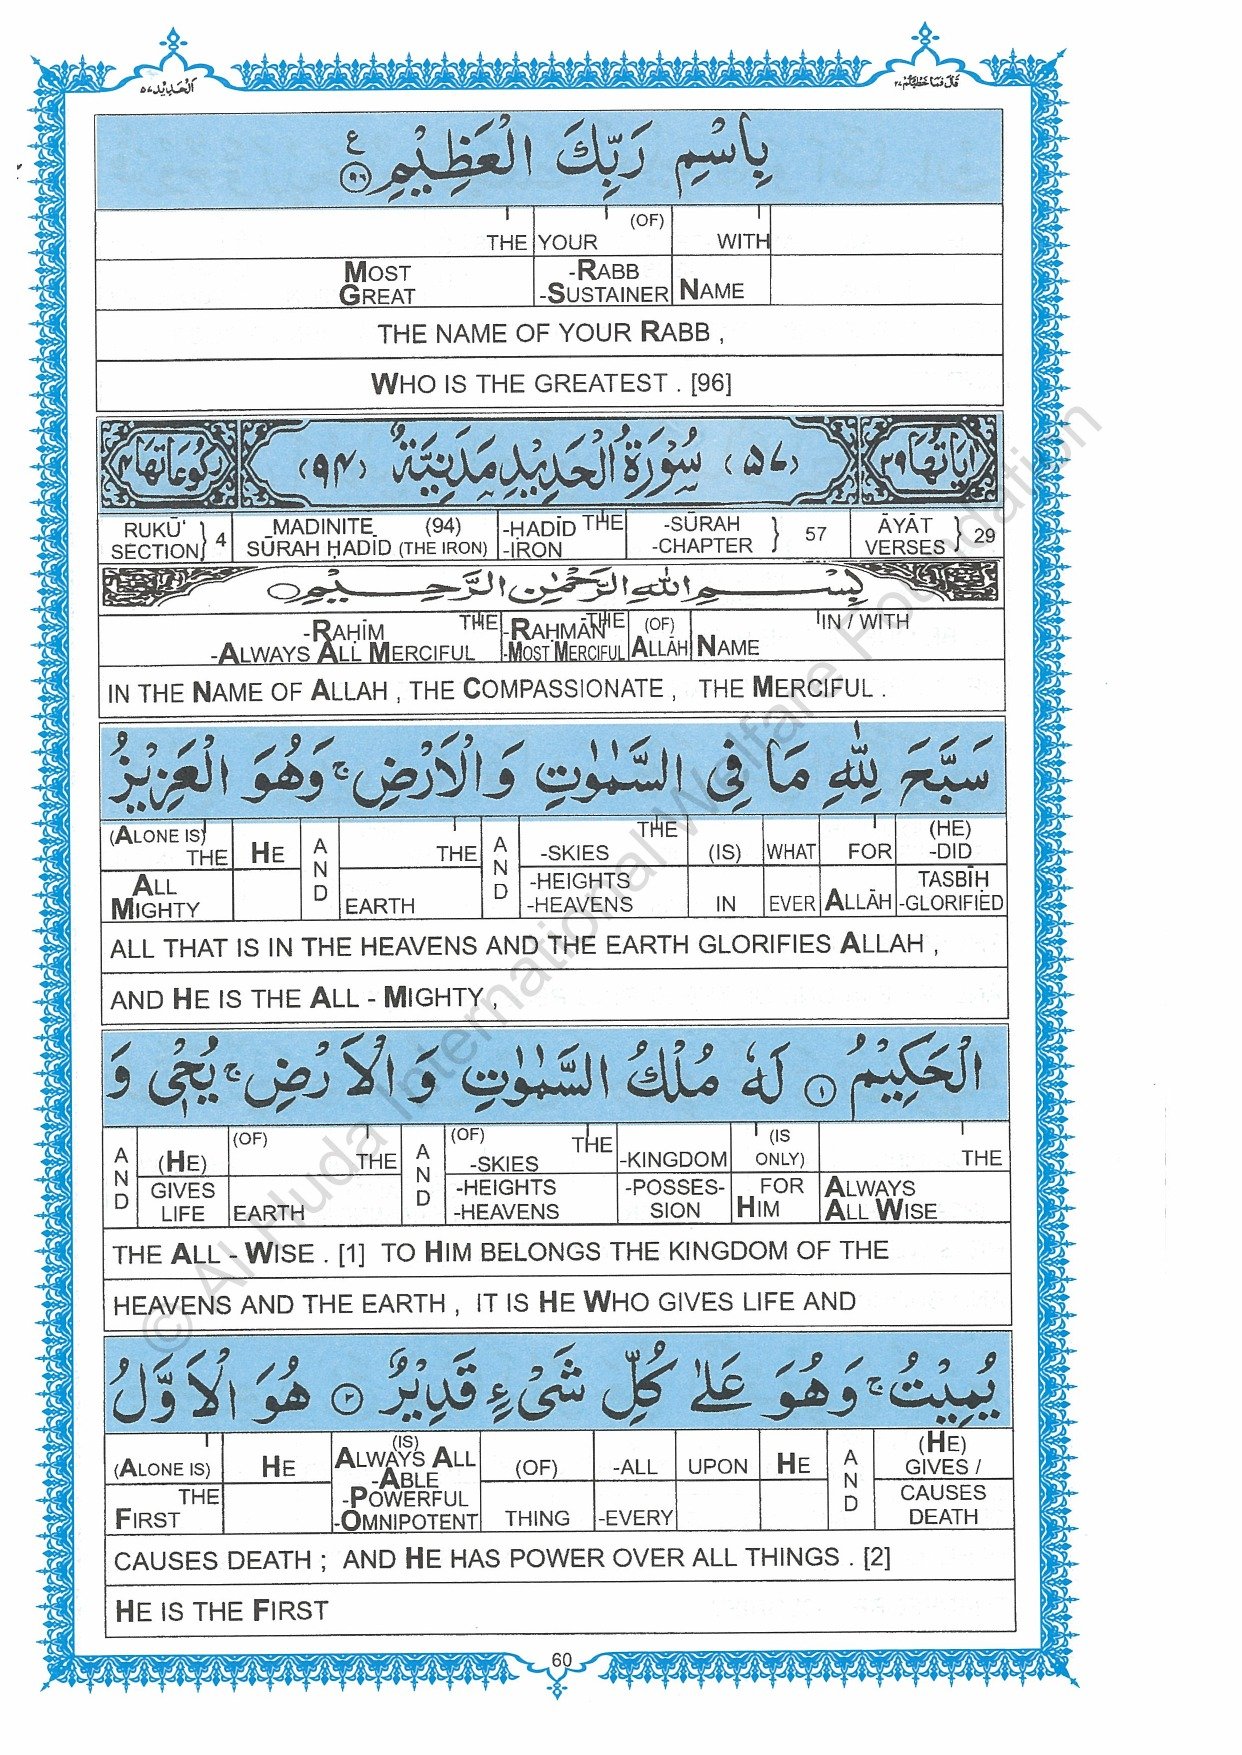 اَلْحَدِيْد ٥٧
قَالَ فَمَا خَطْبُكُمْ ٢٧
بِاسْمِ رَبِّكَ الْعَظِيْمِ ﴿٩٦﴾ ع
THE YOUR (OF) WITH
MOST -RABB NAME
GREAT -SUSTAINER
THE NAME OF YOUR RABB ,
WHO IS THE GREATEST . [96]
اٰيَاتُهَا ٢٩ (٥٧) سُوْرَةُ الْحَدِيْدِ مَدَنِيَّةٌ (٩٤) رُكُوْعَاتُهَا ٤
RUKŪ' } 4 MADINITE (94) -ḤADĪD THE -SŪRAH } 57 ĀYĀT } 29
SECTION SŪRAH ḤADĪD (THE IRON) -IRON -CHAPTER VERSES
بِسْمِ اللهِ الرَّحْمٰنِ الرَّحِيْمِ
-RAḤĪM THE -RAḤMĀN THE (OF) IN / WITH
-ALWAYS ALL MERCIFUL -MOST MERCIFUL ALLĀH NAME
IN THE NAME OF ALLAH , THE COMPASSIONATE , THE MERCIFUL .
سَبَّحَ لِلّٰهِ مَا فِي السَّمٰوٰتِ وَ الْاَرْضِ ۚ وَهُوَ الْعَزِيْزُ
(ALONE IS) THE HE AND THE AND THE -SKIES (IS) WHAT FOR (HE) -DID
ALL MIGHTY EARTH -HEIGHTS -HEAVENS IN EVER ALLĀH TASBĪḤ -GLORIFIED
ALL THAT IS IN THE HEAVENS AND THE EARTH GLORIFIES ALLAH ,
AND HE IS THE ALL - MIGHTY ,
الْحَكِيْمُ ﴿١﴾ لَهٗ مُلْكُ السَّمٰوٰتِ وَ الْاَرْضِ ۚ يُحْيٖ وَ
AND (HE) (OF) THE AND (OF) THE -SKIES -KINGDOM (IS ONLY) THE
GIVES LIFE EARTH -HEIGHTS -HEAVENS -POSSES- SION FOR HIM ALWAYS ALL WISE
THE ALL - WISE . [1] TO HIM BELONGS THE KINGDOM OF THE
HEAVENS AND THE EARTH , IT IS HE WHO GIVES LIFE AND
يُمِيْتُ ۚ وَهُوَ عَلٰى كُلِّ شَيْءٍ قَدِيْرٌ ﴿٢﴾ هُوَ الْاَوَّلُ
(ALONE IS) HE (IS) ALWAYS ALL -ABLE (OF) -ALL UPON HE AND (HE) GIVES /
THE FIRST -POWERFUL -OMNIPOTENT THING -EVERY CAUSES DEATH
CAUSES DEATH ; AND HE HAS POWER OVER ALL THINGS . [2]
HE IS THE FIRST
60
© Al Huda International Welfare Foundation